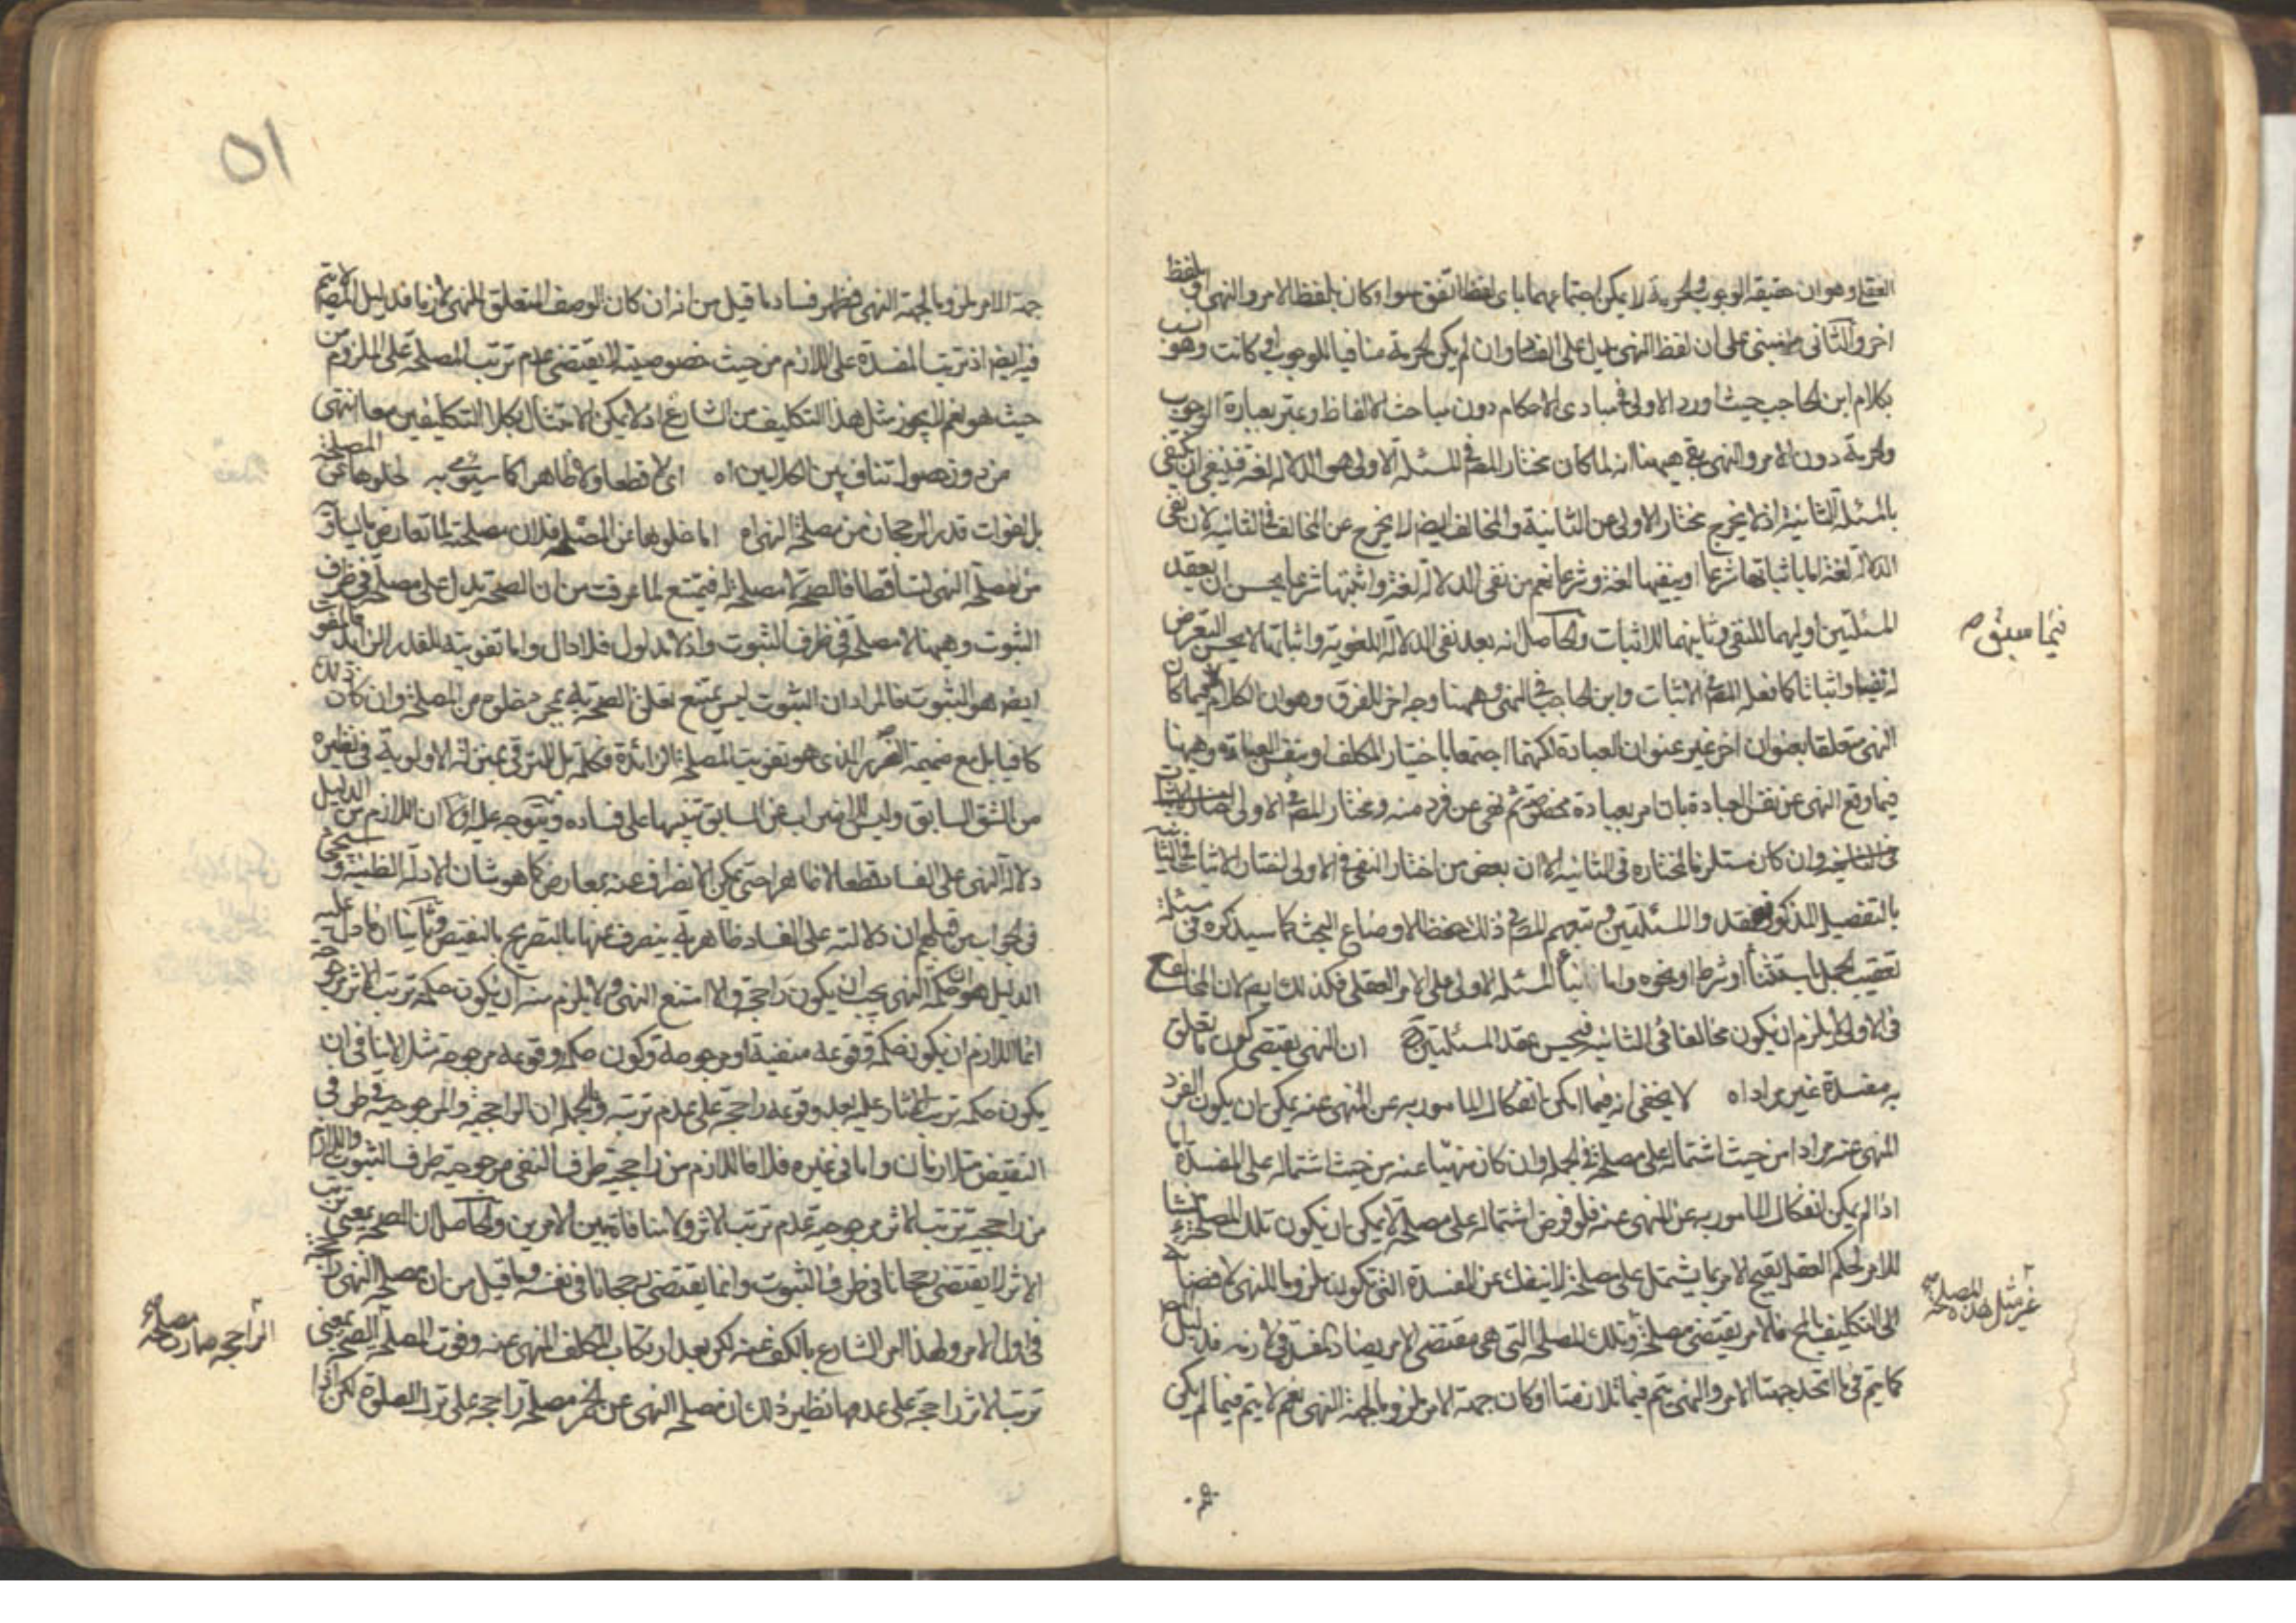 العقل وهو ان حقيقة الوجوب والحرمة لا يمكن اجتماعهما باى لفظ اتفق سواء كان بلفظ الامر والنهى او بلفظ
اخر والثانى مبنى على ان لفظ النهى يدل على الفساد وان لم يكن الحرمة منافيا للوجوب او كانت وهو
بكلام ابن الحاجب حيث اورد الاولى فى مبادى الاحكام دون مباحث الالفاظ وعبر بعبارة الوجوب
والحرمة دون الامر والنهى بقى ههنا انه لما كان مختار المصـ فى المسئلة الاولى هو الدلالة لغة فينبغى ان يكتفى
بالمسئلة الثانية اذ لا يخرج مختار الاولى عن الثانية والمخالف ايضا لا يخرج عن المخالف فى الثانية لان نفى
الدلالة لغة اما باثباتها شرعا او بنفيها لغة وشرعا نعم من نفى الدلالة لغة واثبتها شرعا يحسن ان يعقد
المسئلتين اوليهما للنفى وثانيهما للاثبات والحاصل انه بعد نفى الدلالة اللغوية واثباتها لا يحسن التعرض
له نفيا واثباتا كما فعله المصـ فى الاثبات وابن الحاجب فى النفى وههنا وجه اخر للفرق وهو ان الكلام فيما كان
فيما سبق صح
النهى متعلقا بعنوان اخر غير عنوان العبادة لكنهما اجتمعا باختيار المكلف او بنفس العبادة وههنا
فيما وقع النهى عن نفس العبادة بان امر بعبادة مخصوصة ثم نهى عن فرد منه ومختار المصـ فى الاولى
وان كان مستلزما لمختاره فى الثانية الا ان بعض من اختار النفى فى الاولى اختار الاثبات فى الثانية
بالتفصيل المذكور فعقدوا المسئلتين وتبعهم المصـ فى ذلك حفظا لاوضاع البحث كما سيذكره فى مسئلة
تعقيب الجمل باستثناء او شرط او نحوه واما المسئلة الاولى على الامر العقلى فكذلك ايضا لان المخالف
فى الاولى لا يلزم ان يكون مخالفا فى الثانية فيحسن عقد المسئلتين ان النهى يقتضى كون ما تعلق
به مفسدة غير مراد اه لا يخفى انه فيما امكن انفكاك المامور به عن المنهى عنه يمكن ان يكون الفرد
المنهى عنه مرادا من حيث اشتماله على مصلحة فى الجملة وان كان منهيا عنه من حيث اشتماله على المفسدة اما
اذا لم يمكن انفكاك المامور به عن المنهى عنه فلو فرض اشتماله على مصلحة لا يمكن ان يكون تلك المصلحة منشا
للامر لحكم العقل بقبح الامر بما يشتمل على مصلحة لا ينفك عن المفسدة التى تكون ملزوما للنهى
غير مثل هذه المصلحة صح
الى التكليف بالمحال فالامر يقتضى مصلحة وتلك المصلحة التى هى مقتضى الامر يضاد المفسدة
كما يتم فى ما اتحد جهتا الامر والنهى يتم فيما تلازمتا او كان جهة الامر ملزوما لجهة النهى نعم لا يتم فيما لم يكن
٥١
جهة الامر ملزوما لجهة النهى فظهر فساد ما قيل من انه ان كان الوصف المتعلق للنهى لازما فدليل المصـ لا يتم
فيه ايضا اذ ترتب المفسدة على اللازم من حيث خصوصيته لا يقتضى عدم ترتب المصلحة على الملزوم من
حيث هو نعم لا يجوز مثل هذا التكليف من الشارع اذ لا يمكن الامتثال بكلا التكليفين معا انتهى
من دون حصول تناف بين الكلامين اه اى لا قطعا ولا ظاهرا كما سيصرح به لخلوها عن المصلحة
بل لفوات قدر الرجحان من مصلحة النهى اه اما خلوها عن المصلحة فلان مصلحته لما تعارض بالمساوى
من مصلحة النهى تساقطا فالصحة لا مصلحة له فيمتنع لما عرفت من ان الصحة يدل على مصلحة فى ظرف
الثبوت وههنا لا مصلحة فى ظرف الثبوت واذ لا مدلول فلا دال واما تفويته للقدر الزايد
ايضا هو الثبوت فالمراد ان الثبوت ليس يمتنع تعلق الصحة به بمجرد خلوه من المصلحة وان كان ذلك
كافيا بل مع ضميمة الضرر الذى هو تفويت المصلحة الزائدة فكلمة بل للترقى بمنزلة الاولوية فى نظيره
من الشق السابق وليس للاضراب عن السابق تنبيها على فساده ويتوجه عليه اولا ان اللازم من الدليل
دلالة النهى على الفساد قطعا لا ظاهرا حتى يمكن الانصراف عنه بمعارض كما هو شان الادلة الظنية وسيجئ
فى الجواب من قبلهم ان دلالته على الفساد ظاهرية ينصرف عنها بالتصريح بالنقيض وثانيا ان ما دل عليه
الدليل هو ان حكمة النهى يجب ان يكون راجحة والا امتنع النهى ولا يلزم منه ان يكون حكمة ترتب الاثر مرجوحة
انما اللازم ان يكون حكمة وقوعه منفية او مرجوحة وكون حكمة وقوعه مرجوحة مثلا لا ينافى ان
يكون حكمة ترتب اثار عليه بعد وقوعه راجحة على عدم ترتبه وبالجملة ان الراجحية والمرجوحية فى طرفى
النقيض متلازمان واما فى غيره فلا فاللازم من راجحية طرف النفى مرجوحية طرف الثبوت واللازم
من راجحية ترتب الاثر مرجوحية عدم ترتب الاثر ولا منافاة بين الامرين والحاصل ان الصحة بمعنى ترتب
الاثر لا يقتضى رجحانا فى ظرف الثبوت وانما يقتضى رجحانا فى نفسه وما قيل من ان مصلحة النهى
فى اول الامر ولهذا امر الشارع بالكف عنه لكن بعد ارتكاب المكلف المنهى عنه وفوت المصلحة الصحة بمعنى
الراجحة صارت مصلحة صح
ترتب الاثر راجحة على عدمها نظير ذلك ان مصلحة النهى عن الخمر مصلحة راجحة على ترك الصلوة لكن اذا